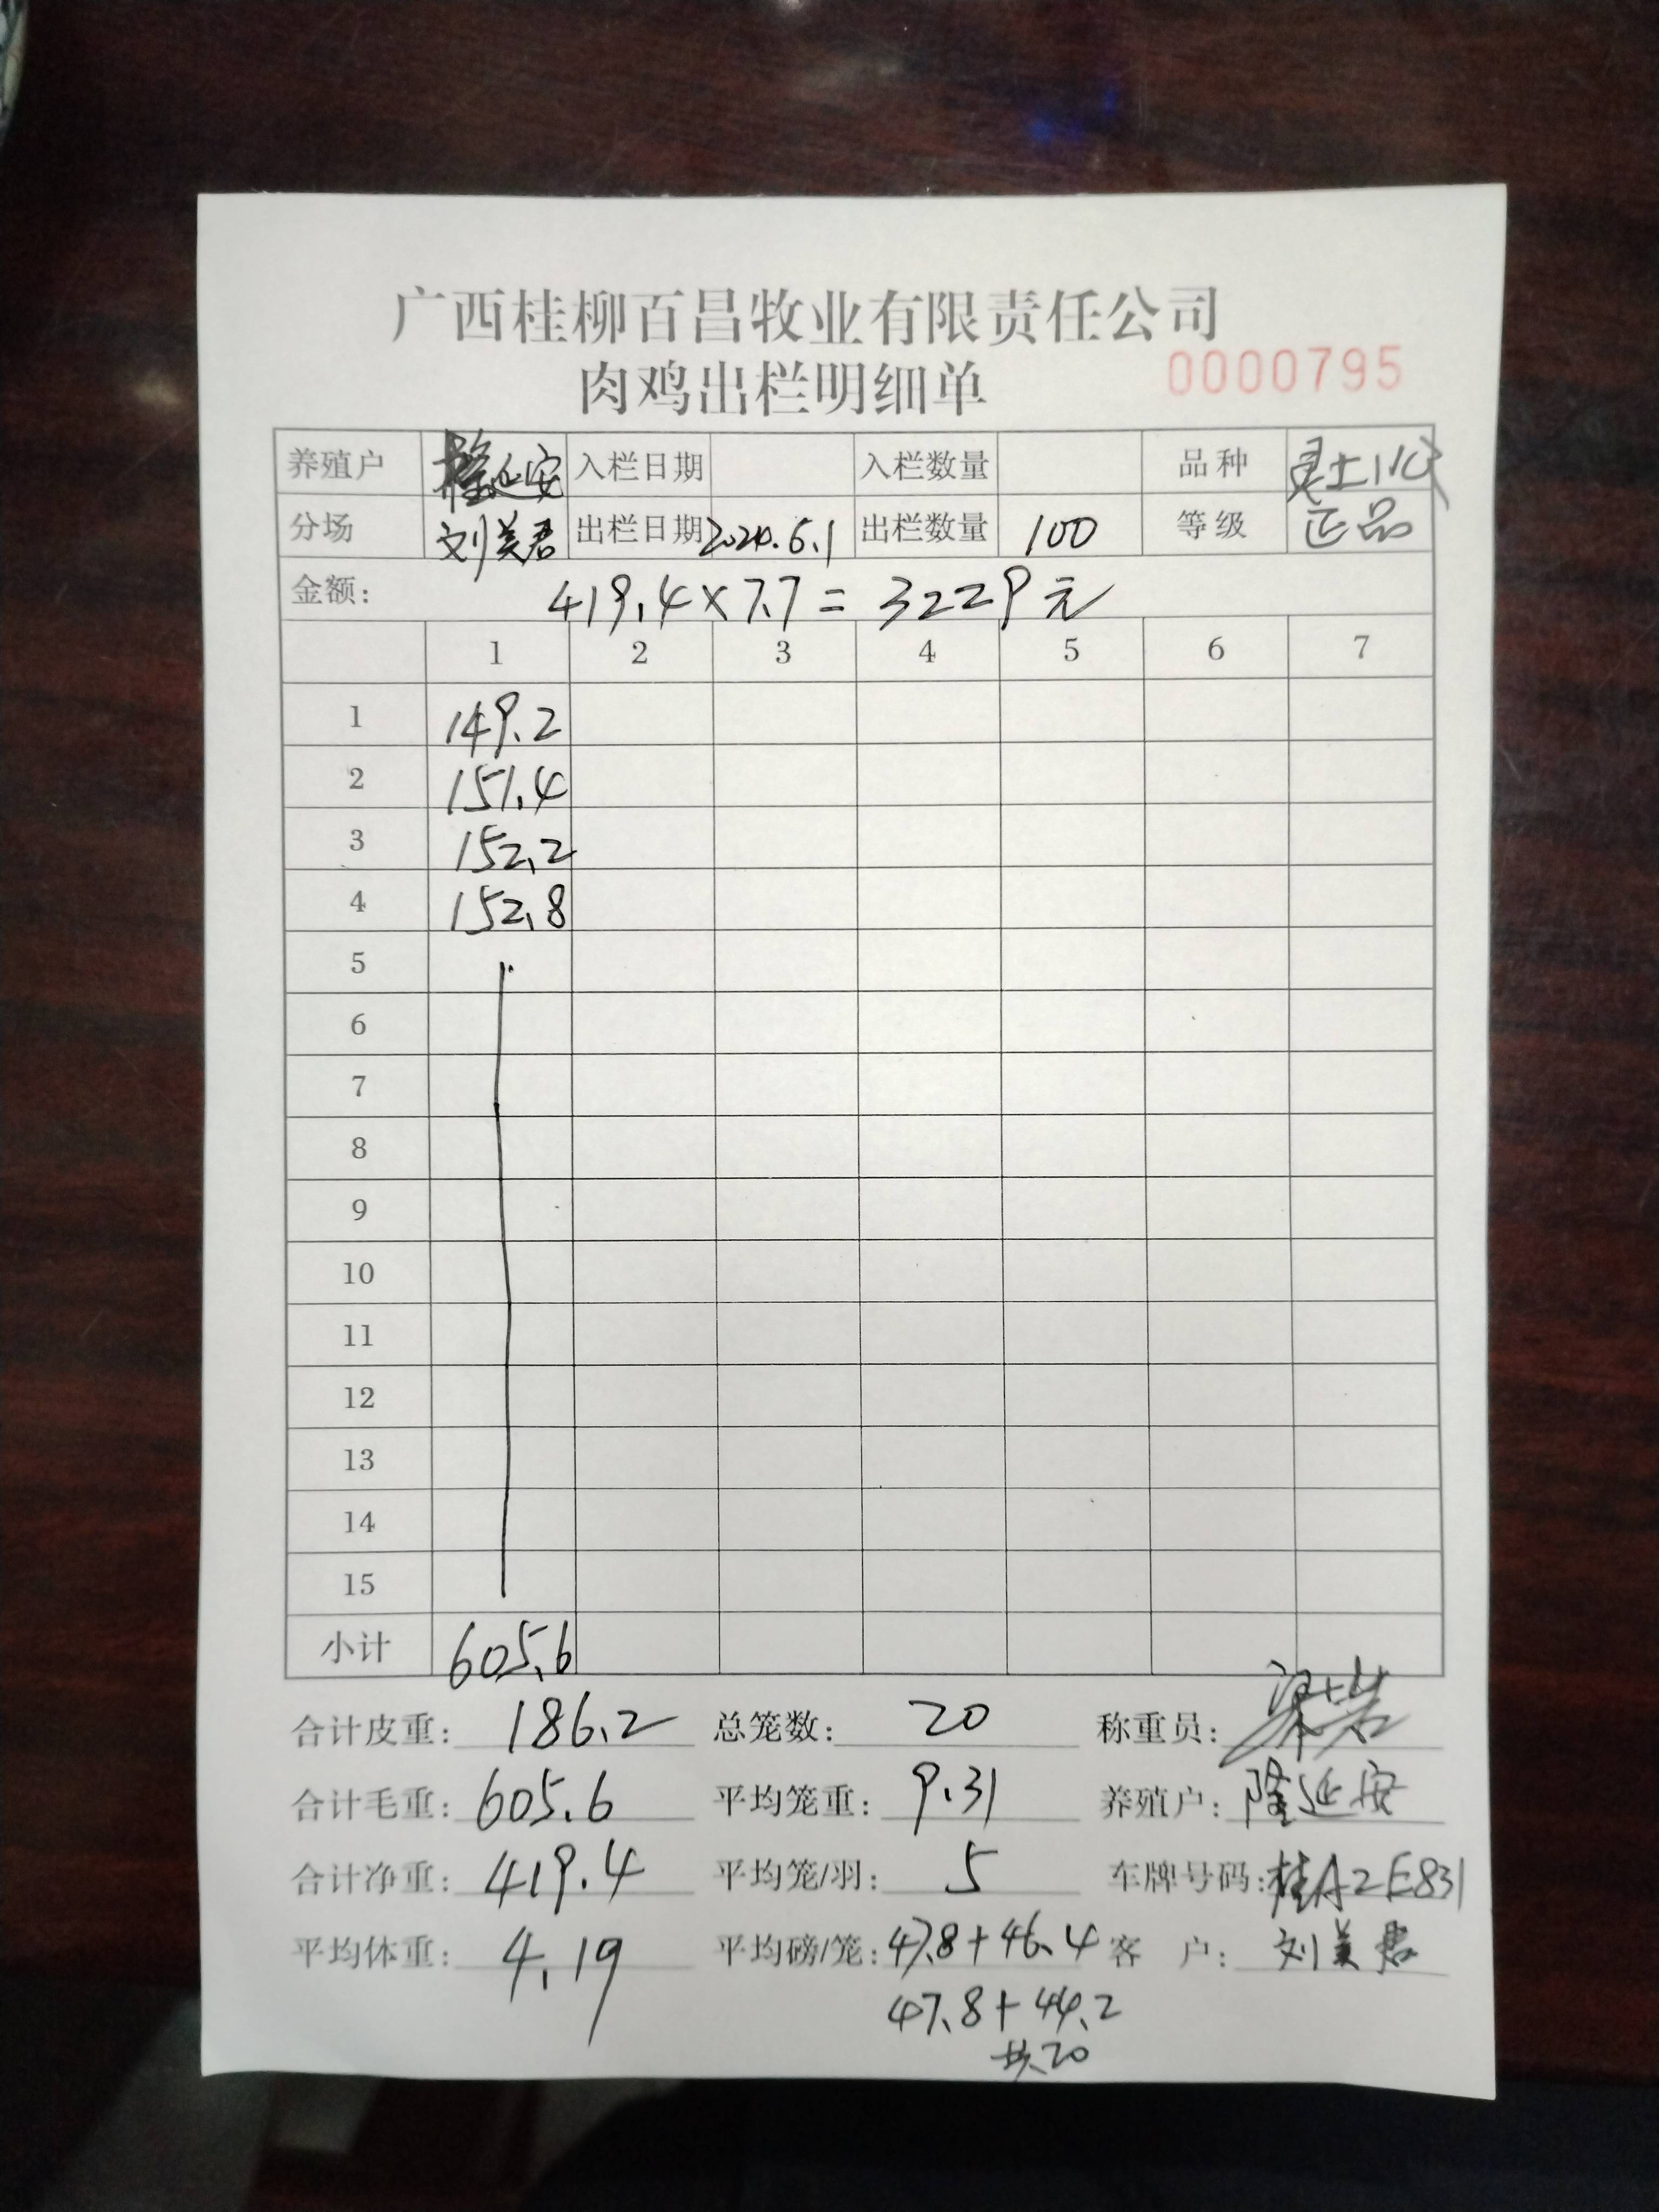 广西桂柳百昌牧业有限责任公司
肉鸡出栏明细单
0000795
养殖户 隆延安 入栏日期 入栏数量 品种 灵土
分场 刘美君 出栏日期 2024.6.1 出栏数量 100 等级 正品
金额: 419.4×7.7=3229元
1 2 3 4 5 6 7
1 149.2
2 151.4
3 152.2
4 152.8
5
6
7
8
9
10
11
12
13
14
15
小计 605.6
合计皮重: 186.2 总笼数: 20 称重员:
合计毛重: 605.6 平均笼重: 9.31 养殖户: 隆延安
合计净重: 419.4 平均笼/羽: 5 车牌号码: 桂A2E831
平均体重: 4.19 平均磅/笼: 47.8+46.4 客 户: 刘美君
47.8+44.2
共20